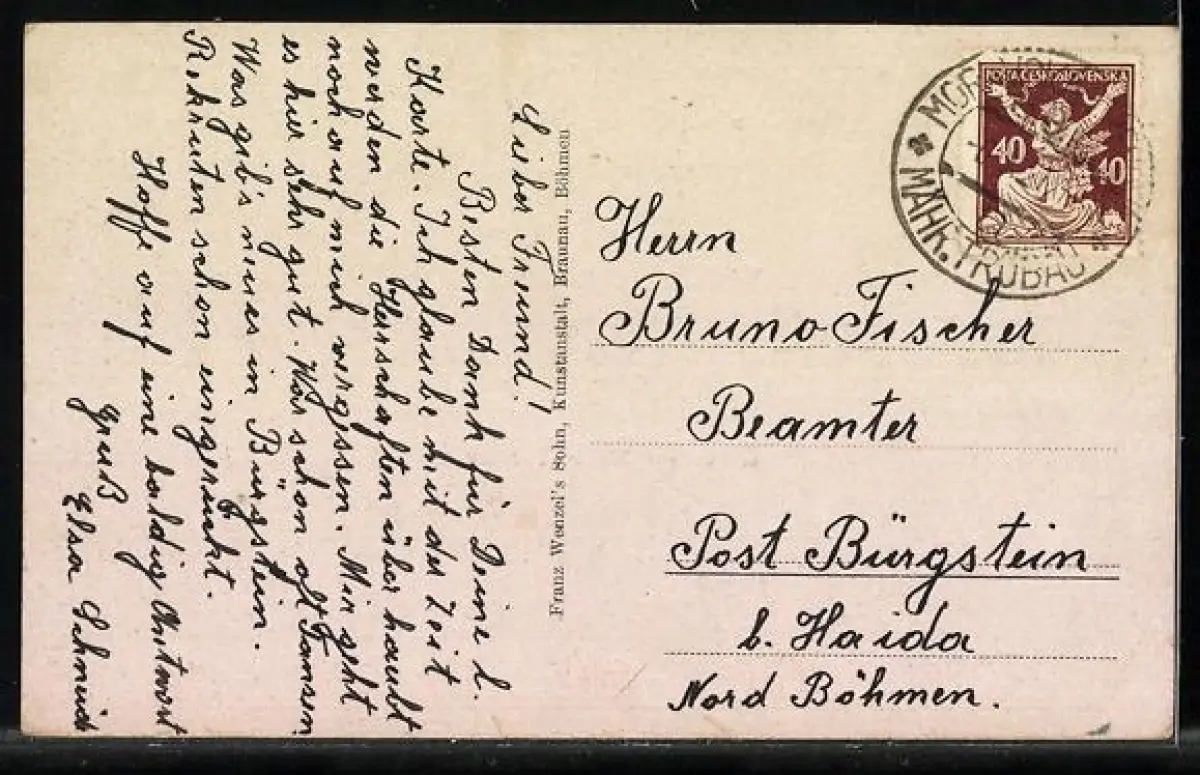 Lieber Freund!
Besten Dank für Deine l.
Karte. Ich glaube mit der Zeit
werden die Herrschaften überhaubt
noch auf mich vergessen. Mir geht
es hier sehr gut. War schon oft Tansen
Was gib's neues in Bürgstein.
Rekruten schon eingerückt.
Hoffe auf eine baldig Antwort
Gruß
Elsa Schmidt
Franz Wenzel's Sohn, Kunstanstalt, Braunau, Böhmen
POŠTA ČESKOSLOVENSKA
40 40
MÄHR. TRÜBAU
Herrn
Bruno Fischer
Beamter
Post Bürgstein
b. Haida
Nord Böhmen.